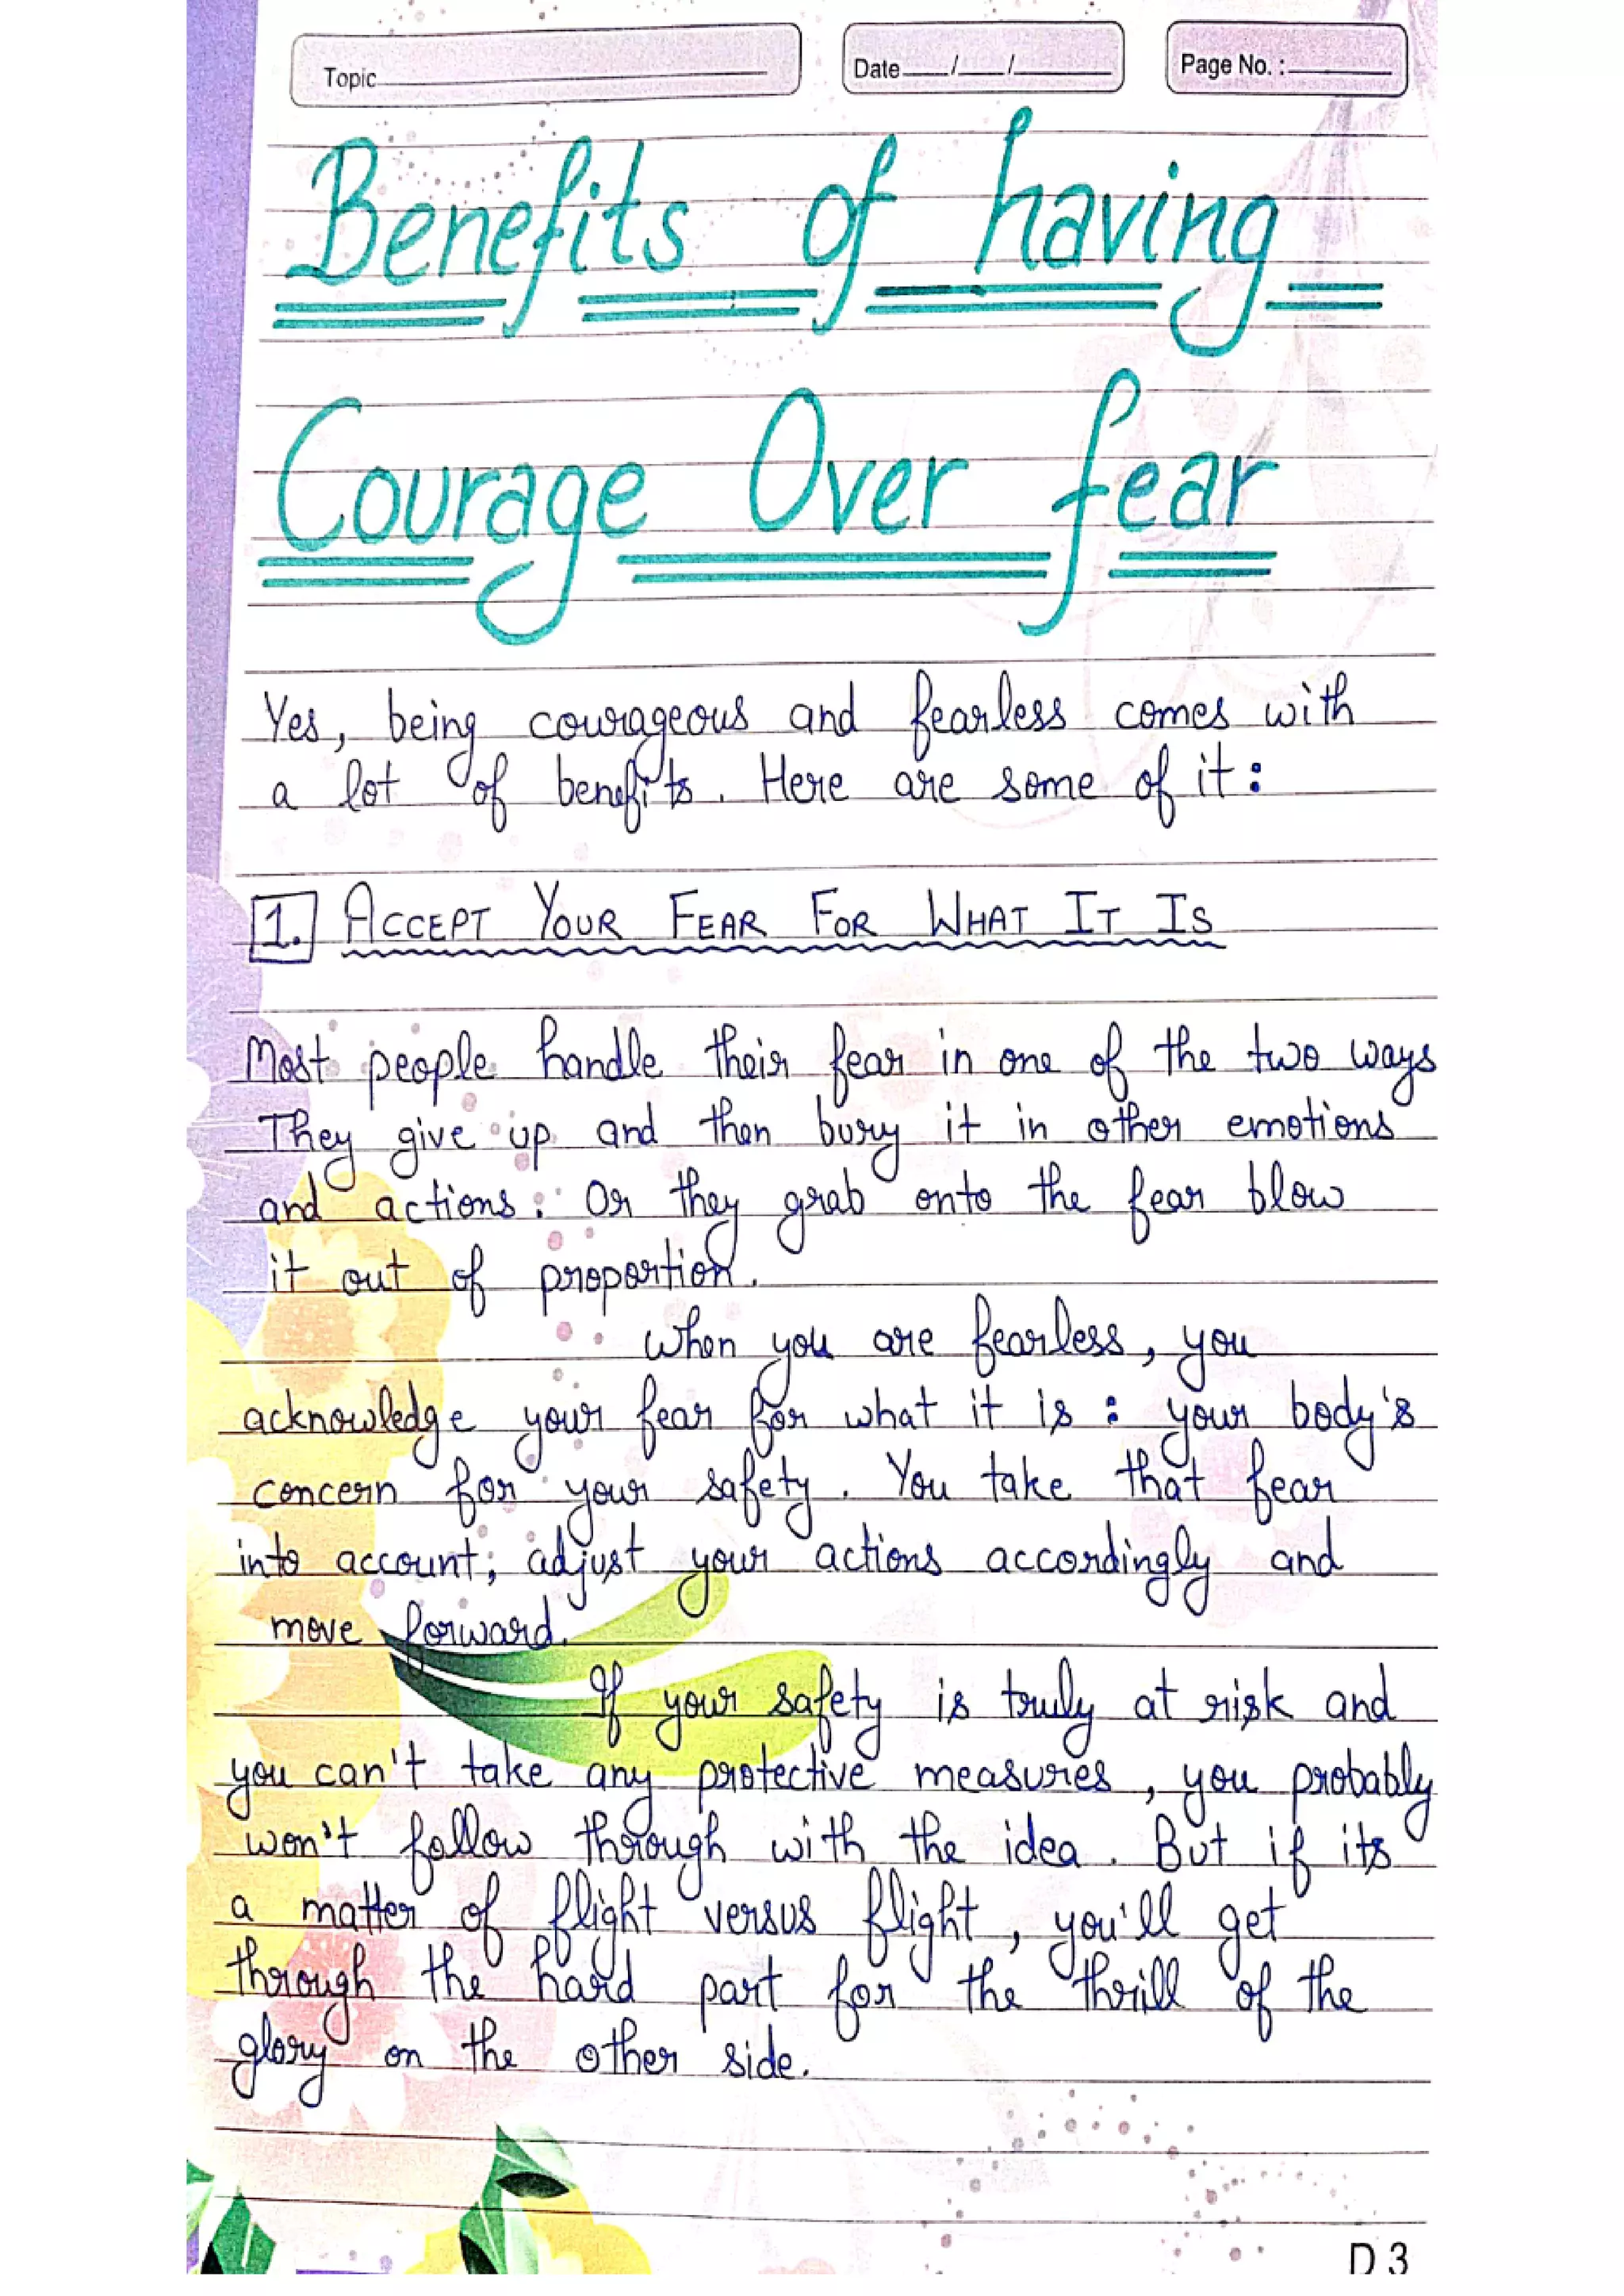 Topic
Date / /
Page No. :
Benefits of having
Courage Over fear
Yes, being courageous and fearless comes with
a lot of benefits. Here are some of it:
1. ACCEPT YOUR FEAR FOR WHAT IT IS
Most people handle their fear in one of the two ways
They give up and then bury it in other emotions
and actions: Or they grab onto the fear blow
it out of proportion.
When you are fearless, you
acknowledge your fear for what it is: your body's
concern for your safety. You take that fear
into account; adjust your actions accordingly and
move forward.
If your safety is truly at risk and
you can't take any protective measures, you probably
won't follow through with the idea. But if its
a matter of flight versus flight, you'll get
through the hard part for the thrill of the
glory on the other side.
D 3